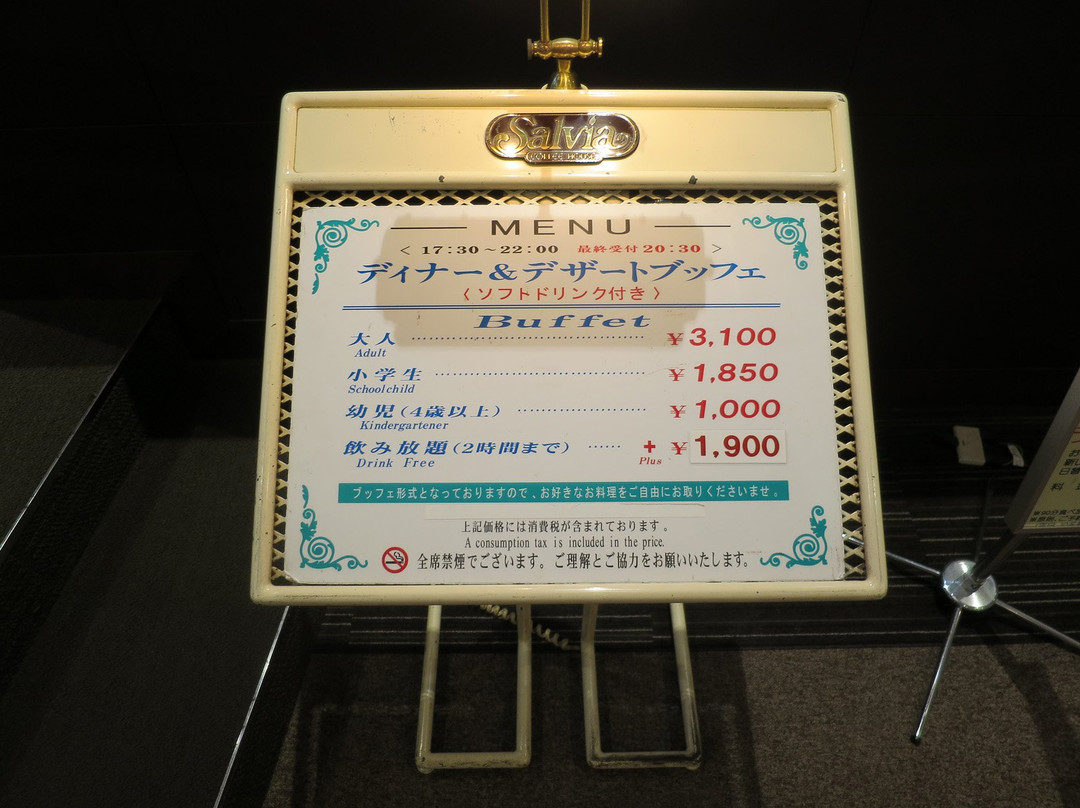 Salvia
COFFEE HOUSE
MENU
< 17:30~22:00 最終受付 20:30 >
ディナー&デザートブッフェ
〈ソフトドリンク付き〉
Buffet
大人 ¥3,100
Adult
小学生 ¥1,850
Schoolchild
幼児(4歳以上) ¥1,000
Kindergartener
飲み放題(2時間まで) + ¥1,900
Drink Free Plus
ブッフェ形式となっておりますので、お好きなお料理をご自由にお取りくださいませ。
上記価格には消費税が含まれております。
A consumption tax is included in the price.
全席禁煙でございます。ご理解とご協力をお願いいたします。